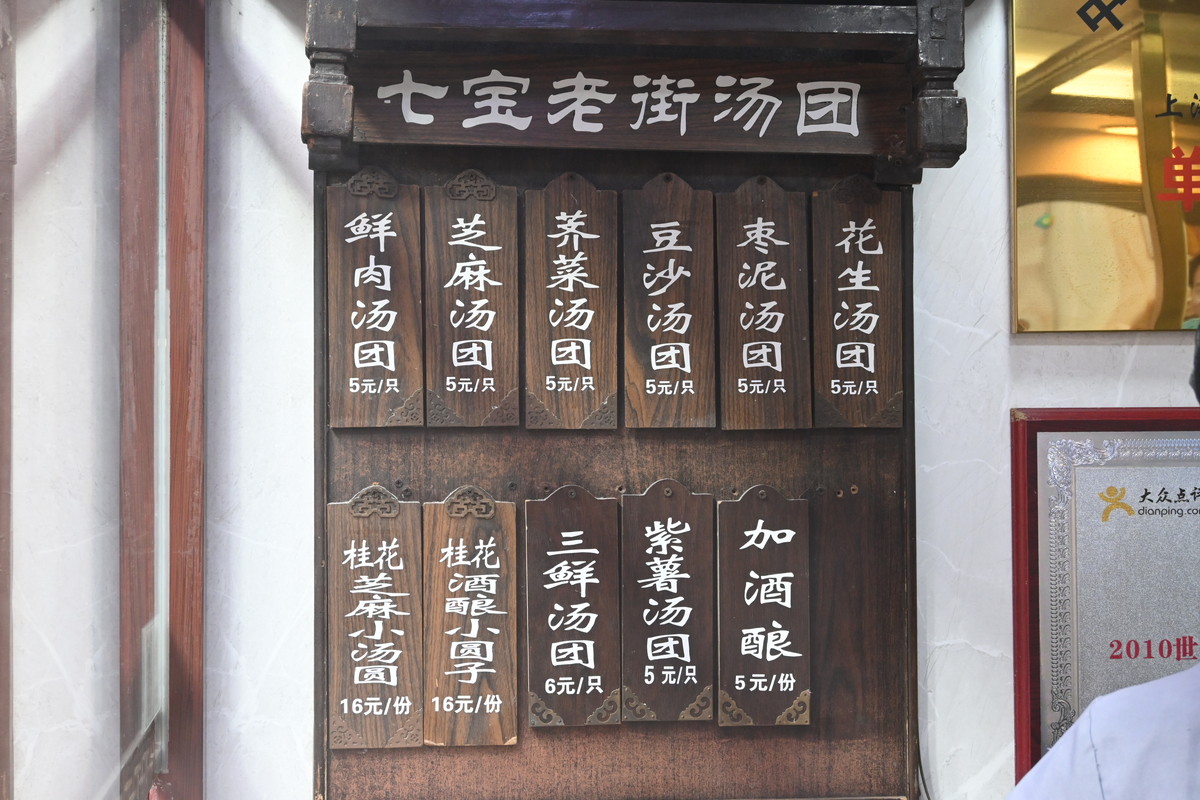 七宝老街汤团
鲜肉汤团
5元/只
芝麻汤团
5元/只
荠菜汤团
5元/只
豆沙汤团
5元/只
枣泥汤团
5元/只
花生汤团
5元/只
桂花
芝麻小汤圆
16元/份
桂花
酒酿小圆子
16元/份
三鲜汤团
6元/只
紫薯汤团
5元/只
加酒酿
5元/份
上
单
大众点评
dianping.co
2010世